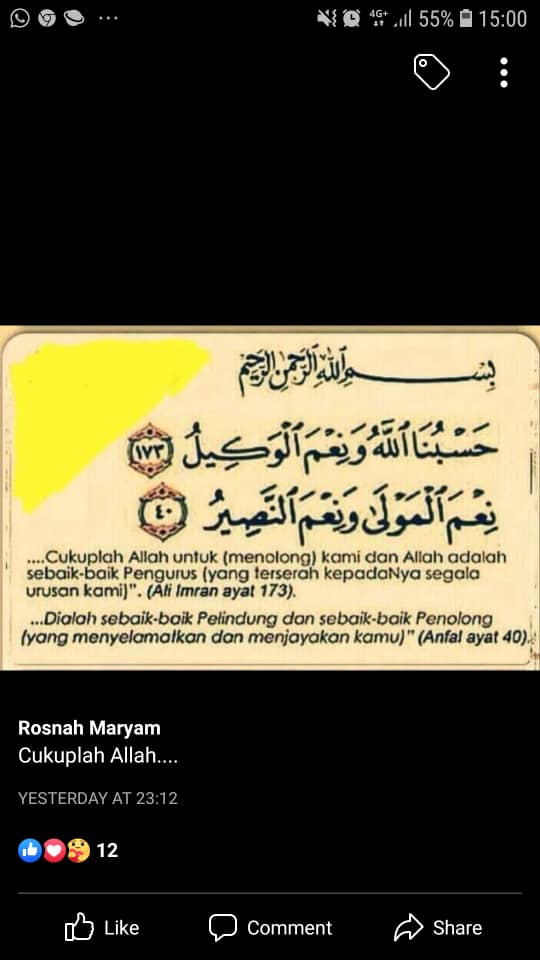 55% 15:00
بِسْمِ اللَّهِ الرَّحْمَٰنِ الرَّحِيمِ
حَسْبُنَا اللَّهُ وَنِعْمَ الْوَكِيلُ ١٧٣
نِعْمَ الْمَوْلَىٰ وَنِعْمَ النَّصِيرُ ٤٠
....Cukuplah Allah untuk (menolong) kami dan Allah adalah
sebaik-baik Pengurus (yang terserah kepadaNya segala
urusan kami)". (Ali Imran ayat 173).
...Dialah sebaik-baik Pelindung dan sebaik-baik Penolong
(yang menyelamatkan dan menjayakan kamu)" (Anfal ayat 40).
Rosnah Maryam
Cukuplah Allah....
YESTERDAY AT 23:12
12
Like Comment Share